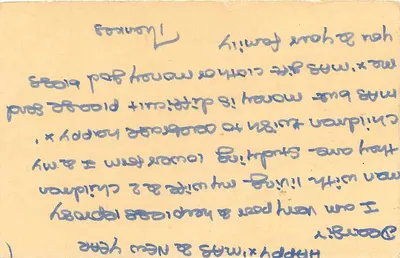 HAPPY X'MAS & NEW YEAR
Dear sir
I am very poor & helpless leprosy
man with living my wife & 2 children
they are studying lower form I & my
children I wish to celebrate happy x'
mas but money is difficult please send
me x'mas gift cloth or money god bless
you & your family
Thankes